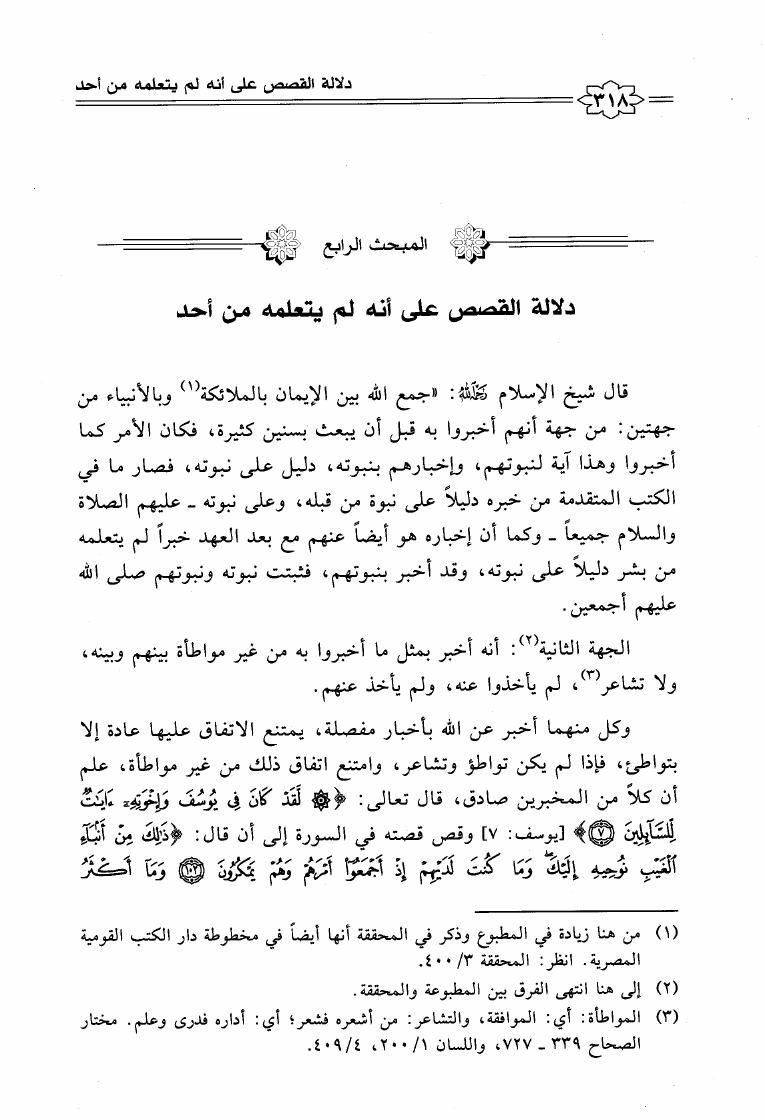 دلالة القصص على أنه لم يتعلمه من أحد
٣١٨
المبحث الرابع
دلالة القصص على أنه لم يتعلمه من أحد
قال شيخ الإسلام رَحِمَهُ اللهُ: «جمع الله بين الإيمان بالملائكة(١) وبالأنبياء من
جهتين: من جهة أنهم أخبروا به قبل أن يبعث بسنين كثيرة، فكان الأمر كما
أخبروا وهذا آية لنبوتهم، وإخبارهم بنبوته، دليل على نبوته، فصار ما في
الكتب المتقدمة من خبره دليلاً على نبوة من قبله، وعلى نبوته ـ عليهم الصلاة
والسلام جميعاً ـ وكما أن إخباره هو أيضاً عنهم مع بعد العهد خبراً لم يتعلمه
من بشر دليلاً على نبوته، وقد أخبر بنبوتهم، فثبتت نبوته ونبوتهم صلى الله
عليهم أجمعين.
الجهة الثانية(٢): أنه أخبر بمثل ما أخبروا به من غير مواطأة بينهم وبينه،
ولا تشاعر(٣)، لم يأخذوا عنه، ولم يأخذ عنهم.
وكل منهما أخبر عن الله بأخبار مفصلة، يمتنع الاتفاق عليها عادة إلا
بتواطئ، فإذا لم يكن تواطؤ وتشاعر، وامتنع اتفاق ذلك من غير مواطأة، علم
أن كلاً من المخبرين صادق، قال تعالى: ﴿۞ لَقَدْ كَانَ فِي يُوسُفَ وَإِخْوَتِهِۦٓ ءَايَٰتٌ
لِّلسَّآئِلِينَ ﴿٧﴾﴾ [يوسف: ٧] وقص قصته في السورة إلى أن قال: ﴿ذَٰلِكَ مِنْ أَنۢبَآءِ
ٱلْغَيْبِ نُوحِيهِ إِلَيْكَۖ وَمَا كُنتَ لَدَيْهِمْ إِذْ أَجْمَعُوٓا۟ أَمْرَهُمْ وَهُمْ يَمْكُرُونَ ﴿١٠٢﴾ وَمَآ أَكْثَرُ
(١) من هنا زيادة في المطبوع وذكر في المحققة أنها أيضاً في مخطوطة دار الكتب القومية
المصرية. انظر: المحققة ٣/ ٤٠٠.
(٢) إلى هنا انتهى الفرق بين المطبوعة والمحققة.
(٣) المواطأة: أي: الموافقة، والتشاعر: من أشعره فشعر؛ أي: أداره فدرى وعلم. مختار
الصحاح ٣٣٩ ـ ٧٢٧، واللسان ١/ ٢٠٠، ٤/ ٤٠٩.